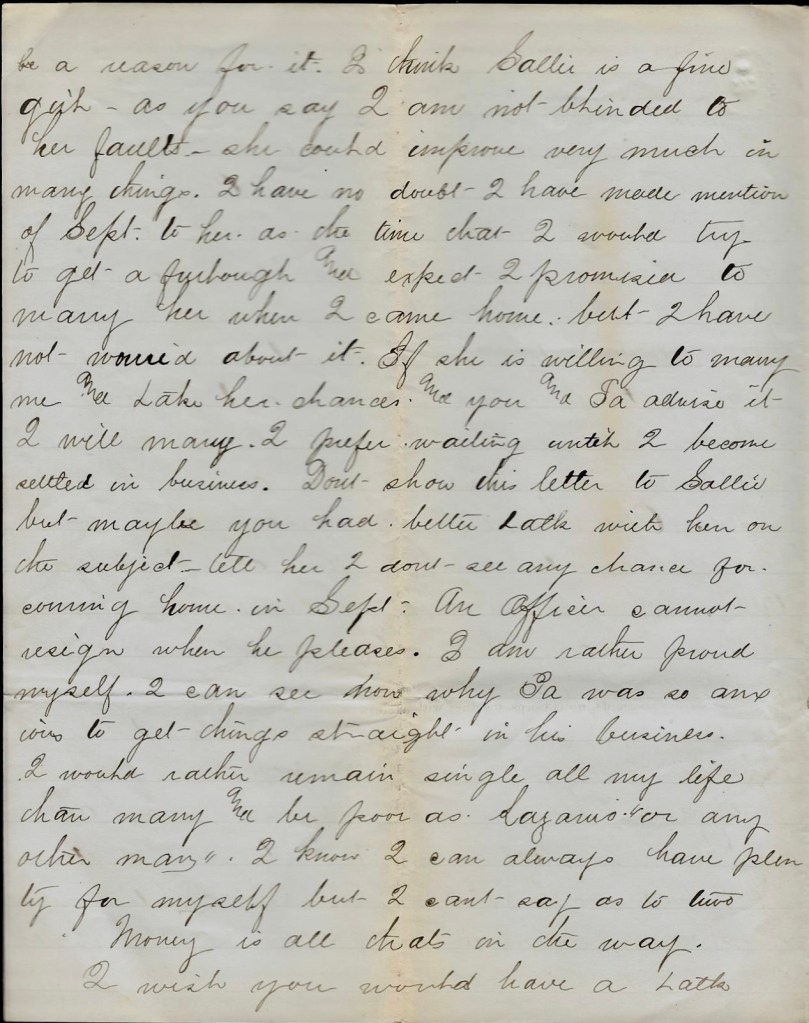 be a reason for it. I think Sallie is a fine
girl - as you say I am not blinded to
her faults - she could improve very much in
many things. I have no doubt I have made mention
of Sept. to her as the time that I would try
to get a furlough and expect I promised to
marry her when I came home. but I have
not worried about it. If she is willing to marry
me and take her chances. and you and Pa advise it
I will marry. I prefer waiting until I become
settled in business. Dont show this letter to Sallie
but maybe you had better talk with her on
the subject - tell her I dont see any chance for
coming home in Sept. An Officer cannot
resign when he pleases. I am rather proud
myself. I can see now why Pa was so anx
ious to get things straight in his business.
I would rather remain single all my life
than marry and be poor as Lazarus "or any
other man". I know I can always have plen
ty for myself but I cant say as to two
Money is all thats in the way.
I wish you would have a talk